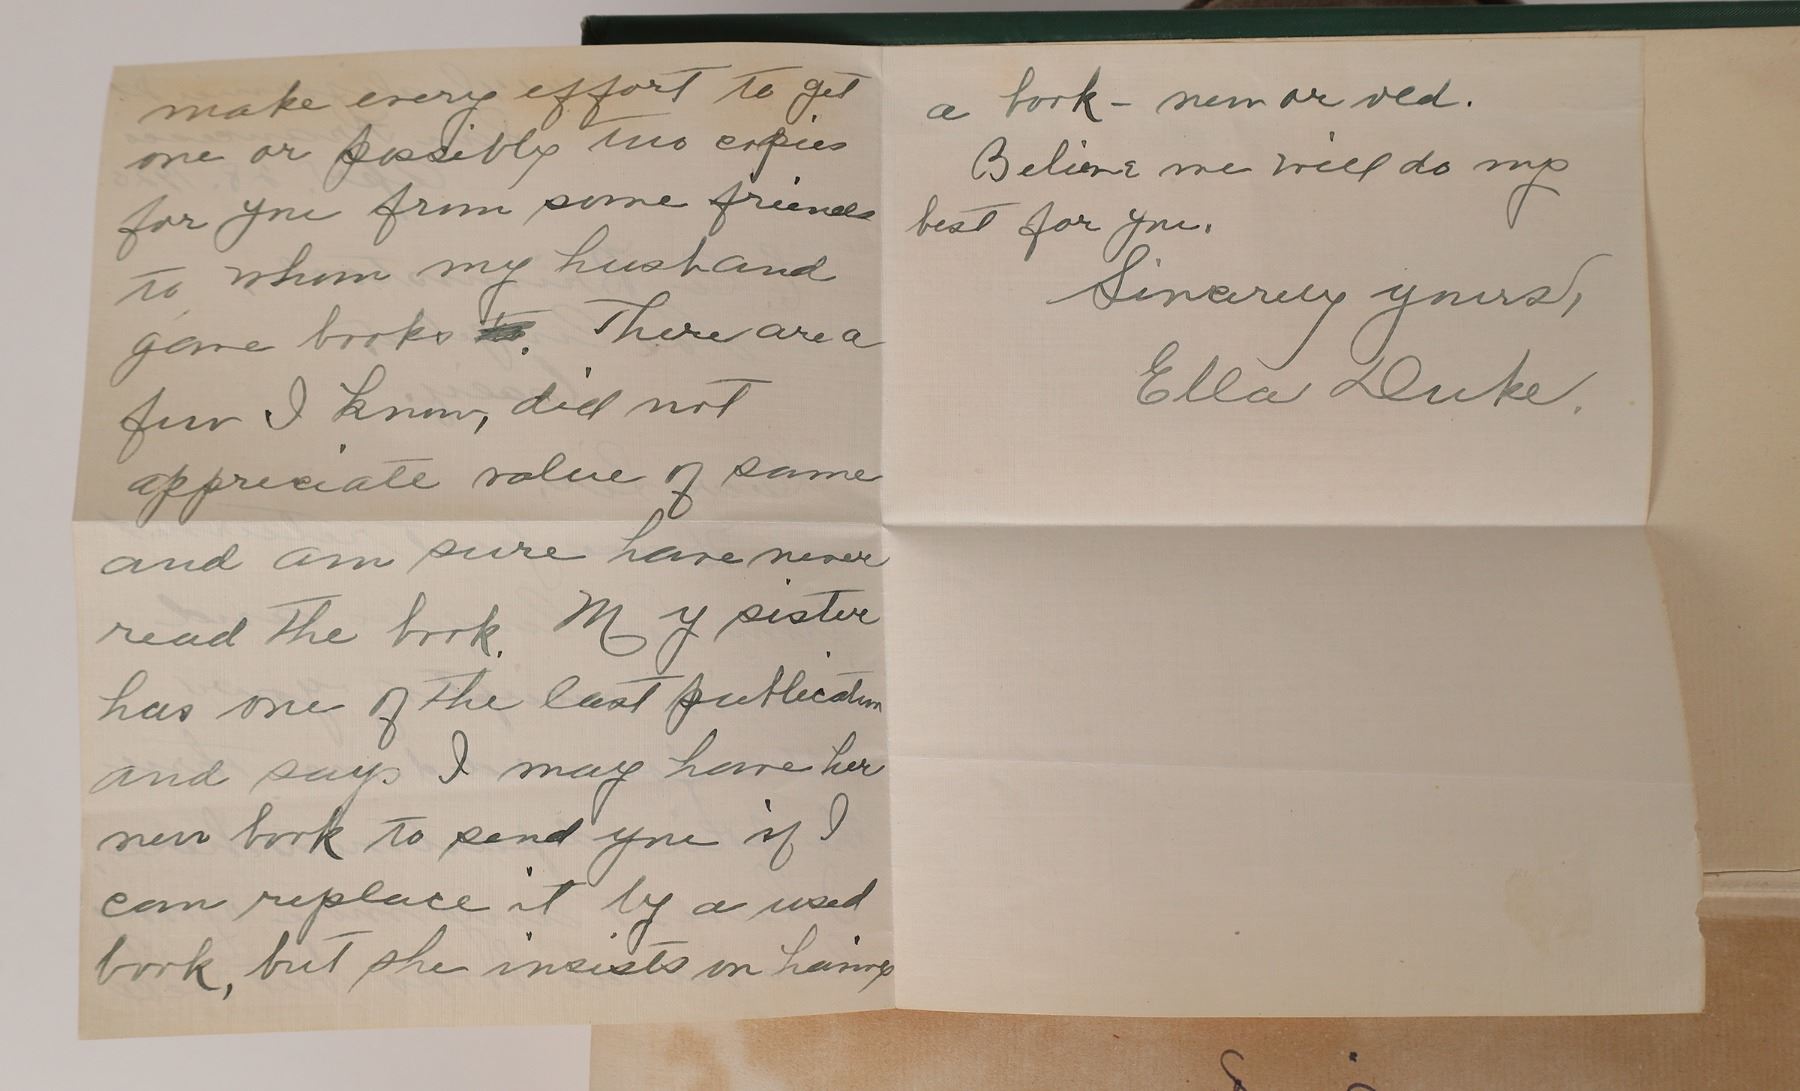 make every effort to get
one or possibly two copies
for you from some friends
to whom my husband
gave books to. There are a
few I know, did not
appreciate value of same
and am sure have never
read the book. My sister
has one of the last publication
and says I may have her
new book to send you if I
can replace it by a used
book, but she insists on having
a book - new or old.
Believe me will do my
best for you.
Sincerely yours,
Ella Duke.